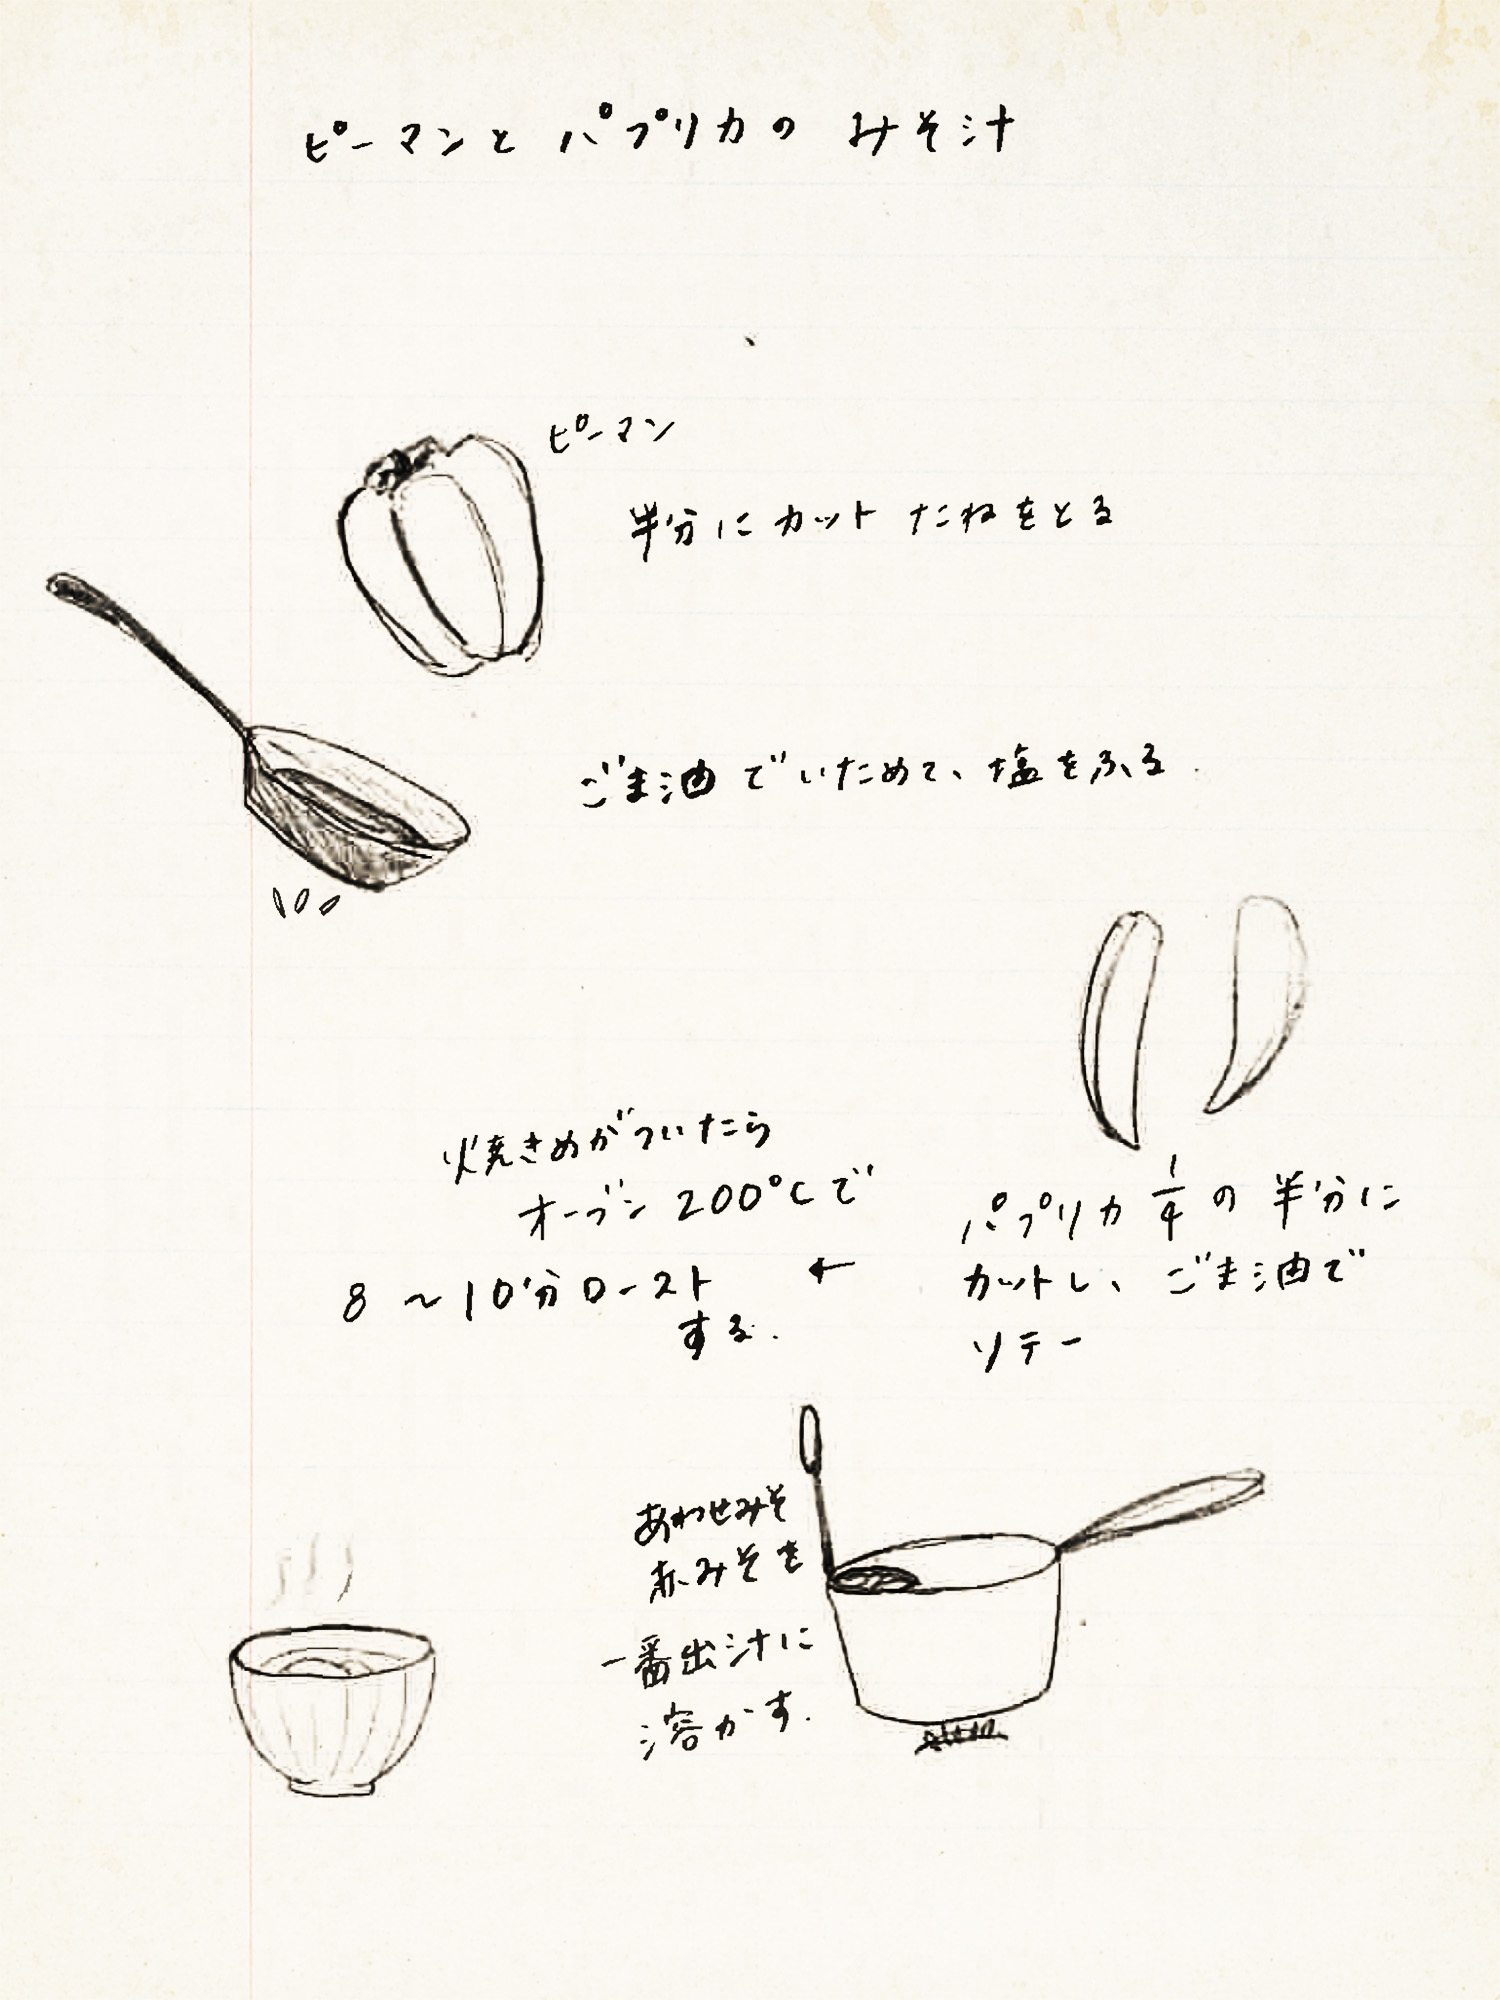 ピーマンと パプリカの みそ汁
ピーマン
半分に カット たねをとる
ごま油 でいためて、塩をふる.
パプリカ 1/4 の 半分に
カットし、ごま油で
ソテー
←
焼きめがついたら
オーブン 200℃で
8 〜10分ロースト
する.
あわせみそ
赤みそを
一番出汁に
溶かす.